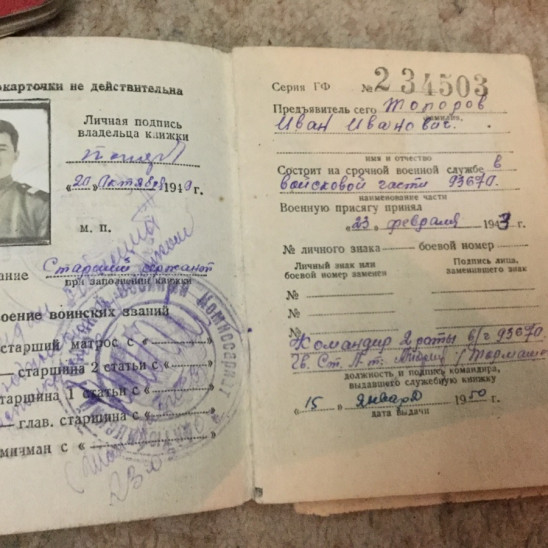 окарточки не действительна
Личная подпись
владельца книжки
«20» октября 1949 г.
М. П.
ание Старший сержант
при заполнении книжки
оение воинских званий
старший матрос с «
старшина 2 статьи с «
таршина 1 статьи с «
глав. старшина с «
мичман с «
Серия ГФ № 234503
Предъявитель сего Топоров
фамилия,
Иван Иванович.
имя и отчество
Состоит на срочной военной службе в
войсковой части 93670.
наименование части
Военную присягу принял
«23» февраля 1943 г.
№ личного знака боевой номер
Личный знак или
боевой номер заменен
Подпись лица,
заменившего знак
№
№
№
Командир 2 роты в/ч 93670.
Гв. Ст. Л-т.
должность и подпись командира,
выдавшего служебную книжку
«15» января 1950 г.
дата выдачи